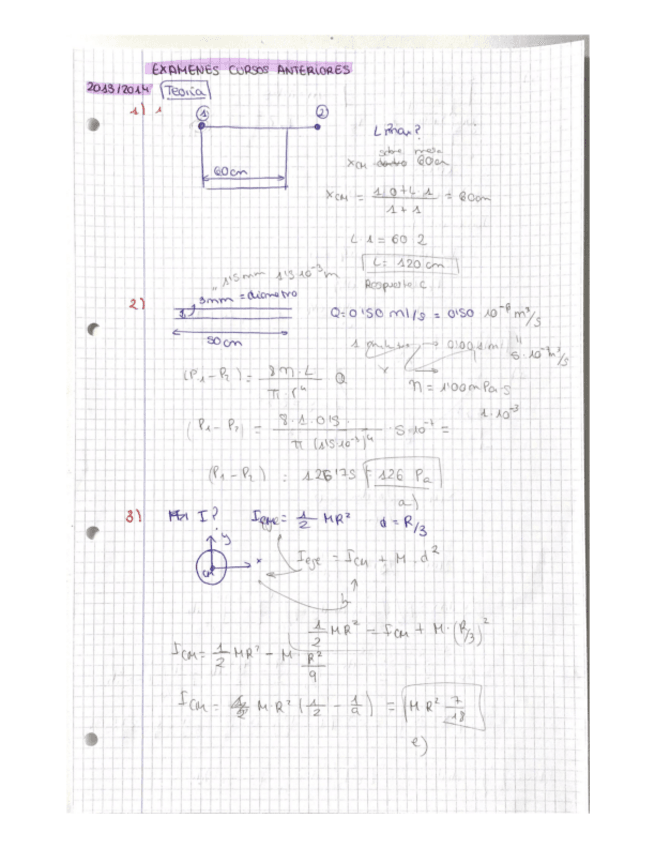 EXAMENES CURSOS ANTERIORES
2013/2014 Teoría
1) 1
① ②
L max?
sobre mesa
XCM dentro 60cm
60cm
XCM = 1·0+L·1 / 1+1 = 60cm
L·1 = 60·2
L = 120 cm
Respuesta C.
1'5mm 1'5·10⁻³m
2) 3mm = diametro
Q = 0'50 ml/s = 0'50 10⁻⁶ m³/s
50cm
5·10⁻⁷ m³/s
(P1-P2) = 8η·L / π·r⁴ Q
η = 1'00mPa·s
1·10⁻³
(P1-P2) = 8·1·0'5 / π(1'5·10⁻³)⁴ · 5·10⁻⁷ =
(P1-P2) = 126'75 = 126 Pa
a)
3) I? Ieje = 1/2 MR² d = R/3
y
x
CM
Ieje = ICM + M·d²
1/2 MR² = ICM + M·(R/3)²
ICM = 1/2 MR² - M R²/9
ICM = MR² (1/2 - 1/9) = MR² 7/18
e)